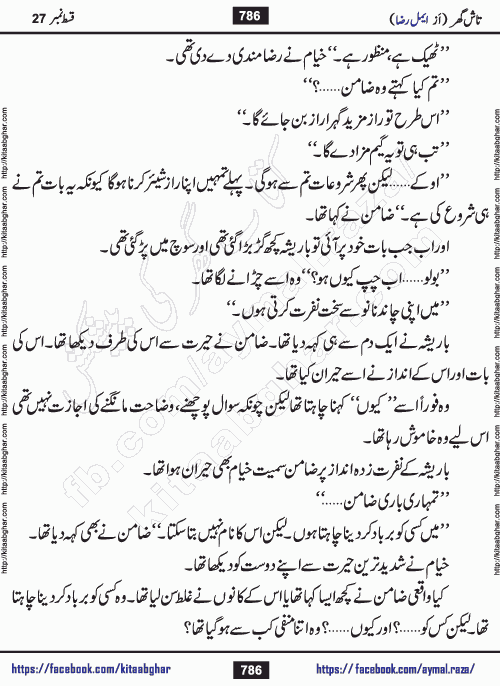 تاش گھر (از ایمل رضا) 786 قسط نمبر 27
’’ٹھیک ہے، منظور ہے۔‘‘ خیام نے رضا مندی دے دی تھی۔
’’تم کیا کہتے وہ ضامن......؟‘‘
’’اس طرح تو راز مزید گہرا راز بن جائے گا۔‘‘
’’تب ہی تو یہ گیم مزا دے گا۔‘‘
’’اوکے......لیکن پھر شروعات تم سے ہوگی۔ پہلے تمہیں اپنا راز شیئر کرنا ہوگا کیونکہ یہ بات تم نے
ہی شروع کی ہے۔‘‘ ضامن نے کہا تھا۔
اور اب جب بات خود پر آئی تو باریشہ کچھ گڑبڑا گئی تھی اور سوچ میں پڑ گئی تھی۔
’’بولو......اب چپ کیوں ہو؟‘‘ وہ اسے چڑانے لگا تھا۔
’’میں اپنی چاند نانو سے سخت نفرت کرتی ہوں۔‘‘
باریشہ نے ایک دم سے ہی کہہ دیا تھا۔ ضامن نے حیرت سے اس کی طرف دیکھا تھا۔ اس کی
بات اور اس کے انداز نے اسے حیران کیا تھا۔
وہ فوراً اسے ’’کیوں‘‘ کہنا چاہتا تھا لیکن چونکہ سوال پوچھنے، وضاحت مانگنے کی اجازت نہیں تھی
اس لیے وہ خاموش رہا تھا۔
باریشہ کے نفرت زدہ انداز پر ضامن سمیت خیام بھی حیران ہوا تھا۔
’’تمہاری باری ضامن......‘‘
’’میں کسی کو برباد کر دینا چاہتا ہوں۔ لیکن اس کا نام نہیں بتا سکتا۔‘‘ ضامن نے بھی کہہ دیا تھا۔
خیام نے شدید ترین حیرت سے اپنے دوست کو دیکھا تھا۔
کیا واقعی ضامن نے کچھ ایسا کہا تھا یا اس کے کانوں نے غلط سن لیا تھا۔ وہ کسی کو برباد کر دینا چاہتا
تھا۔ لیکن کس کو......؟ اور کیوں......؟ وہ اتنا منفی کب سے ہو گیا تھا؟
https://facebook.com/kitaabghar 786 https://facebook.com/aymal.raza/
http://kitaabghar.com http://kitaabghar.com http://kitaabghar.com http://kitaabghar.com http://kitaabghar.com http://kitaabghar.com
fb.com/aymal.raza/
kitaabghar.com